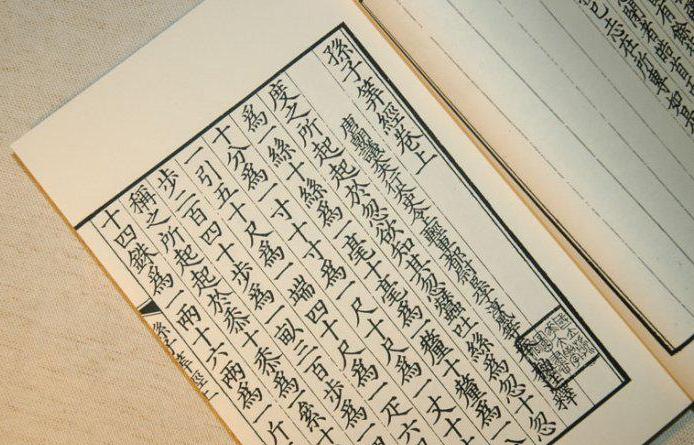 有餘
者皓首
志在所專如
孫子筭經卷上
唐朝議大夫行太史令上輕車都尉臣李淳風等
釋
度之所起起於忽欲知其忽蠶吐絲為忽十忽
為一絲十絲為一毫十毫為一釐十釐為
十分為一寸十寸為一尺十尺為一丈十
一引五十尺為一端四十尺為一疋六
步二百四十步為一畝三百步為
稱之所起起於黍十黍為一絫十
十四銖為一兩十六兩為一斤
孫子筭經上